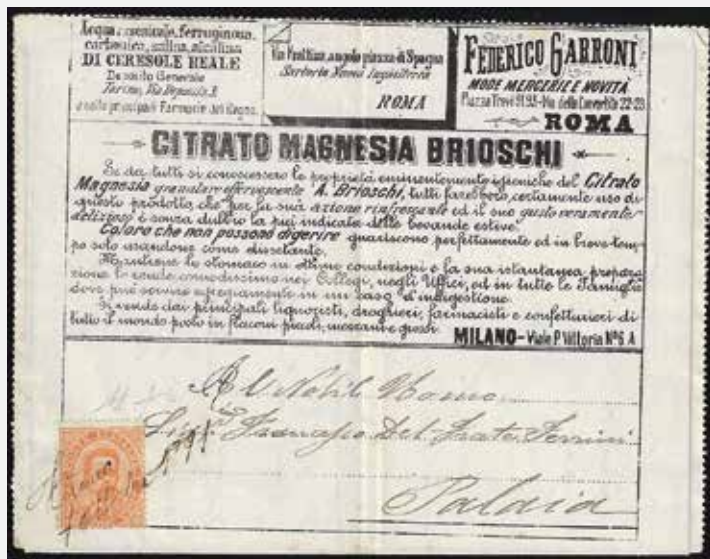 Acqua arsenicale, ferruginosa,
carbonica, salina, alcalina
DI CERESOLE REALE
Deposito Generale
Torino, Via Deposito 3
e nelle principali Farmacie del Regno.
Via Frattina, angolo piazza di Spagna
Sartoria
ROMA
FEDERICO GARRONI
MODE MERCERIE E NOVITÀ
Piazza Trevi 91.93-Via delle Convertite 22-23
ROMA
CITRATO MAGNESIA BRIOSCHI
Se da tutti si conoscessero le proprietà eminentemente igieniche del Citrato
Magnesia granulare effervescente A. Brioschi, tutti farebbero certamente uso di
questo prodotto, che per la sua azione rinfrescante ed il suo gusto veramente
delizioso è senza dubbio la più indicata delle bevande estive.
Coloro che non possono digerire guariscono perfettamente ed in breve tem-
po solo usandone come dissetante.
Mantiene lo stomaco in ottime condizioni e la sua istantanea prepara-
zione lo rende comodissimo nei Collegi, negli Uffici, ed in tutte le Famiglie
dove può servire egregiamente in un caso d'indigestione.
Si vende dai principali liquoristi, droghieri, farmacisti e confetturieri di
tutto il mondo posto in flaconi piccoli, mezzani e grossi.
MILANO - Viale P. Vittoria Nº 6 A
Al Nobil Uomo
Sig. Francesco Del Frate Ferrini
Palaia